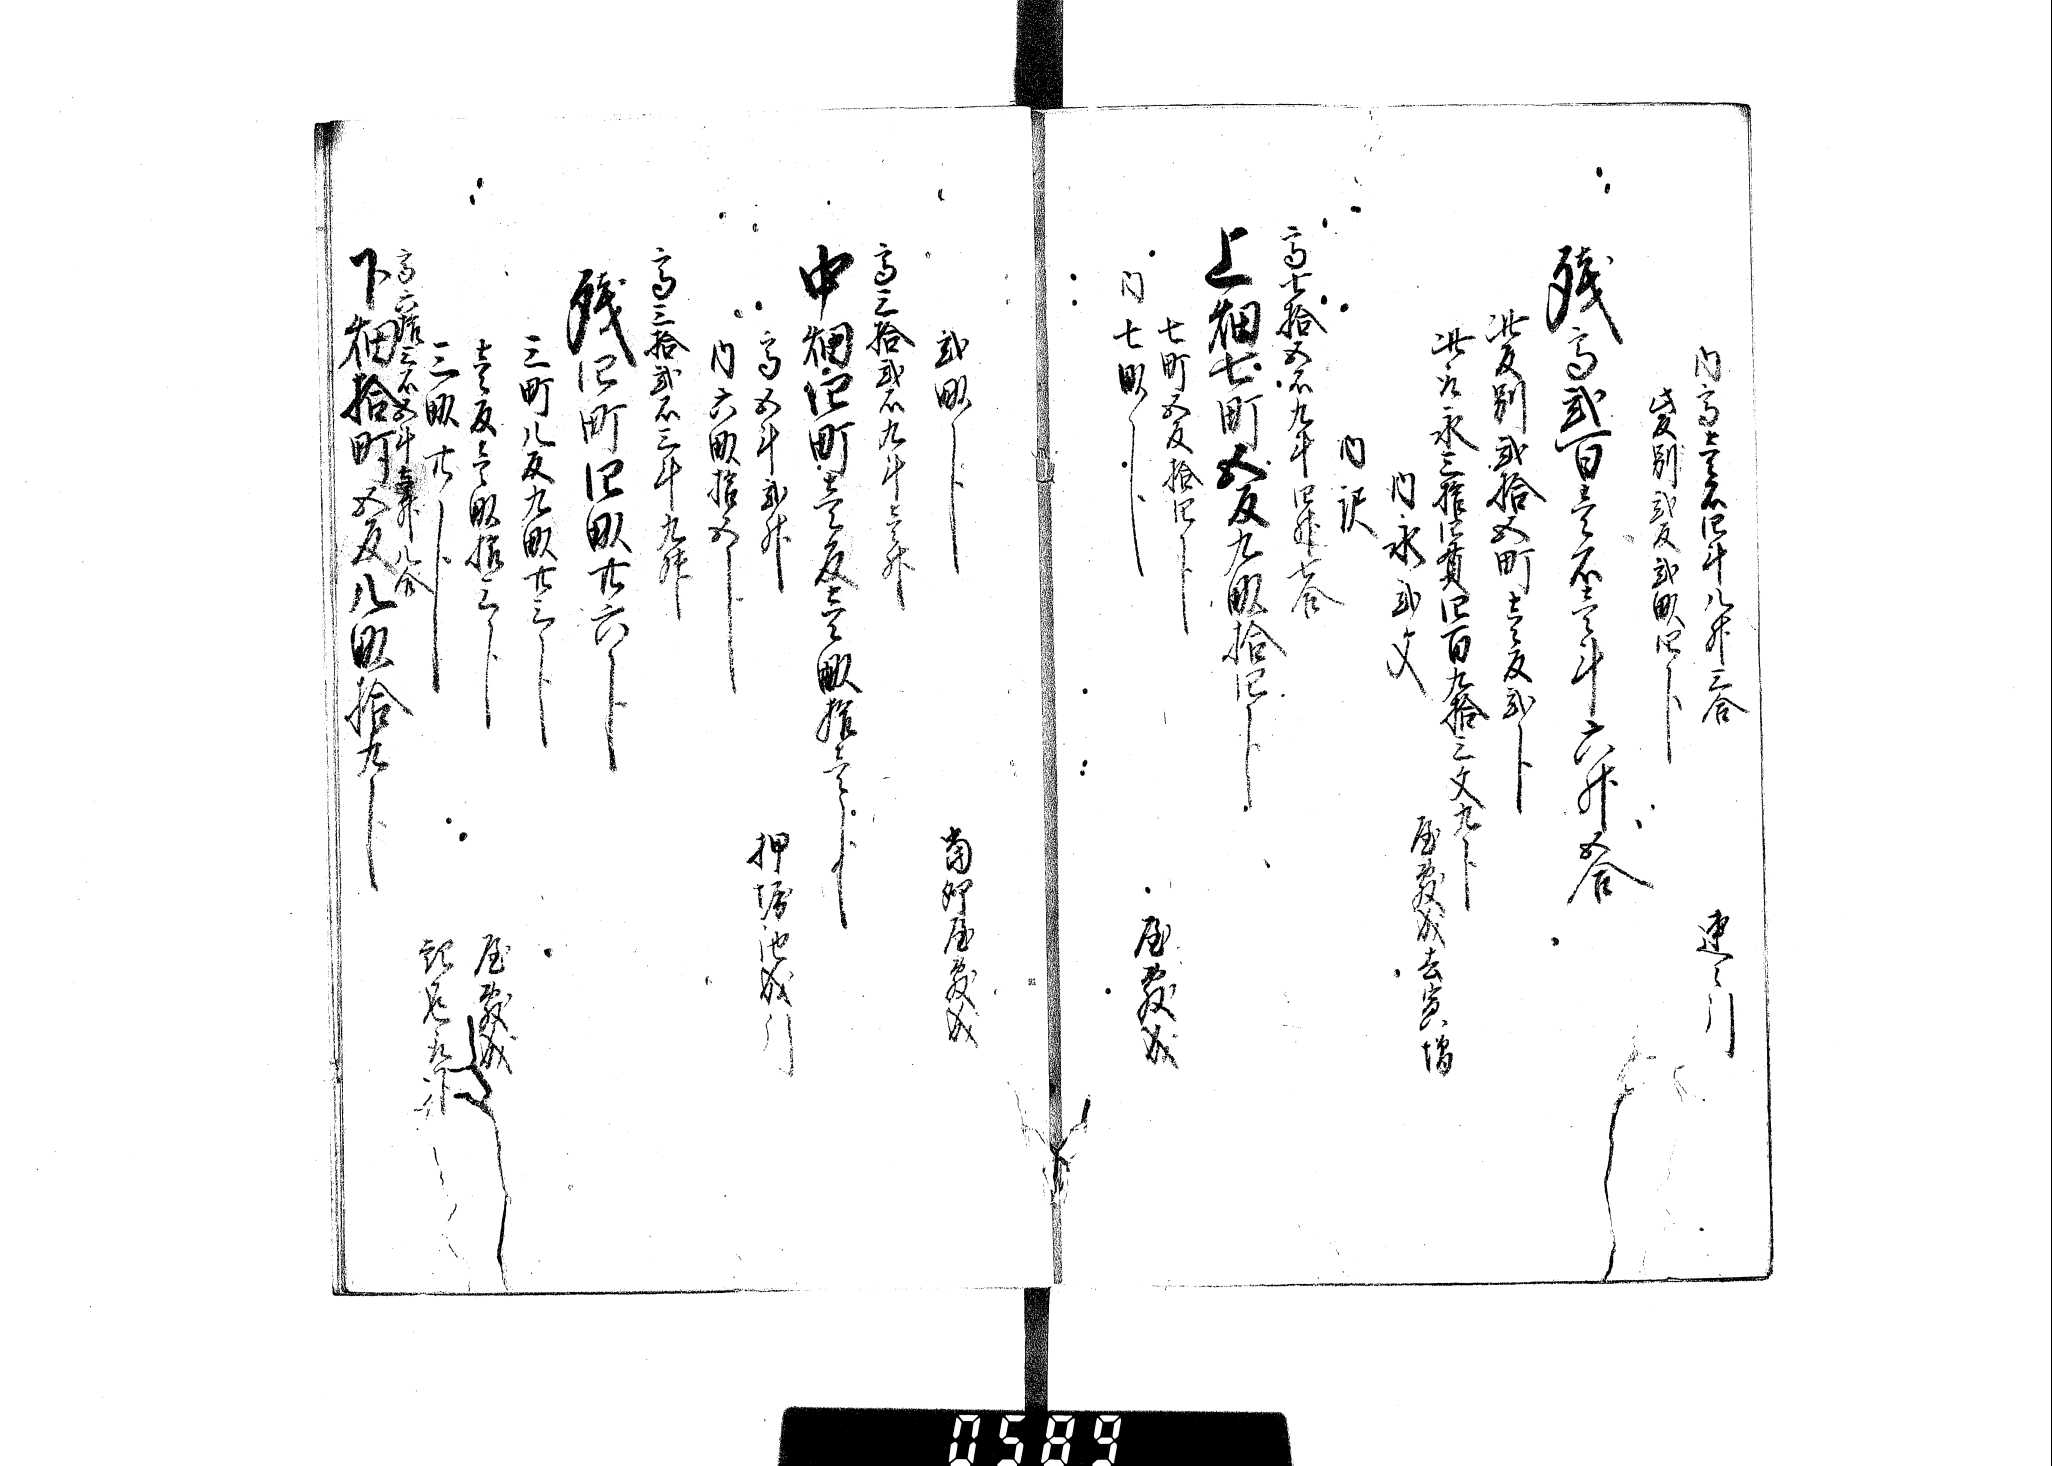 内高壱石四斗八升三合
此反別弐反弐畝四歩
連々引
残高弐百壱石壱斗六升五合
此反別弐拾五町壱反弐歩
此取永三拾四貫四百九拾三文九分
内永弐文
屋敷成去寅増
内訳
高七拾五石九斗四升七合
上畑七町五反九畝拾四歩
七町五反拾四歩
内七畝歩
屋敷成
弐畝歩
当卯屋敷成
高三拾弐石九斗壱升
中畑四町壱反壱畝拾壱歩
高五斗弐升
内六畝拾五歩
押堀池成引
高三拾弐石三斗九升
残四町四畝廿六歩
三町八反九畝廿三歩
壱反壱畝拾三歩
屋敷成
三畝廿歩
高六拾三石五斗壱升八合
下畑拾町五反八畝拾九歩
0589